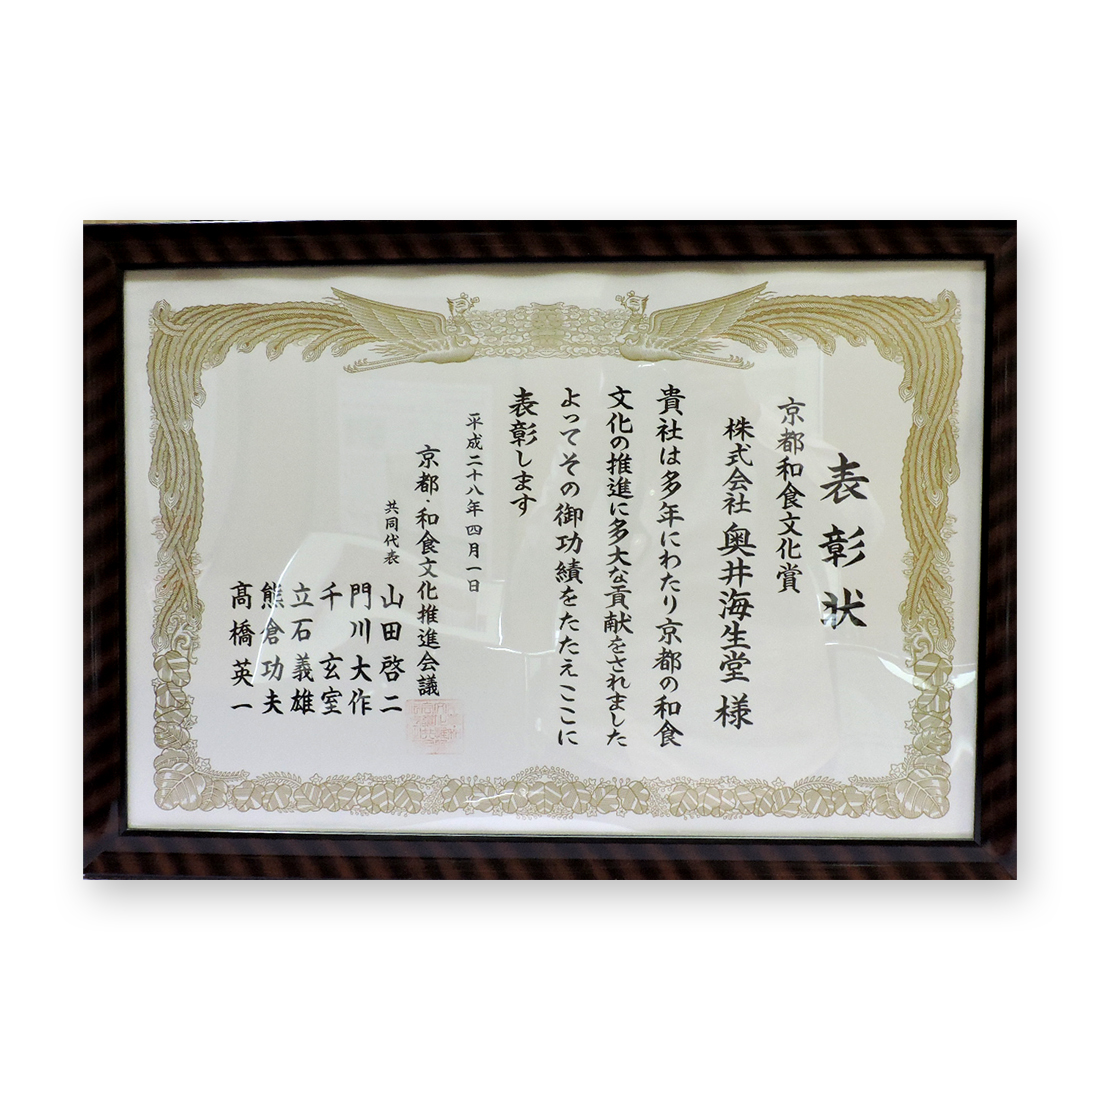 表彰状
京都和食文化賞
株式会社 奥井海生堂 様
貴社は多年にわたり京都の和食
文化の推進に多大な貢献をされました
よってその御功績をたたえここに
表彰します
平成二十八年四月一日
京都・和食文化推進会議
共同代表
山田啓二
門川大作
千玄室
立石義雄
熊倉功夫
髙橋英一